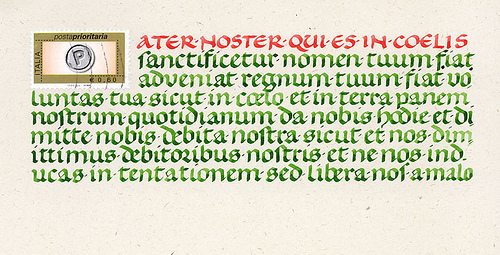 postaprioritaria
ITALIA
P
€ 0,60
ATER·NOSTER·QUI·ES·IN·COELIS
sanctificetur nomen tuum fiat
adveniat regnum tuum fiat vo
luntas tua sicut in cœlo et in terra panem
nostrum quotidianum da nobis hodie et di
mitte nobis debita nostra sicut et nos dim
ittimus debitoribus nostris et ne nos ind
ucas in tentationem sed libera nos a malo